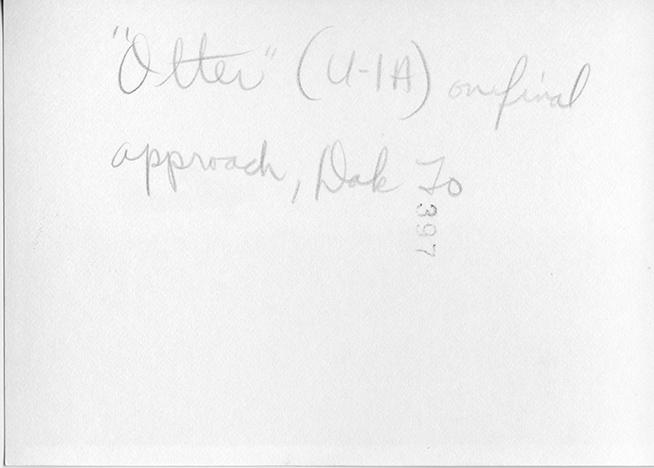 "Otter" (U-1A) on final
approach, Dak To
397